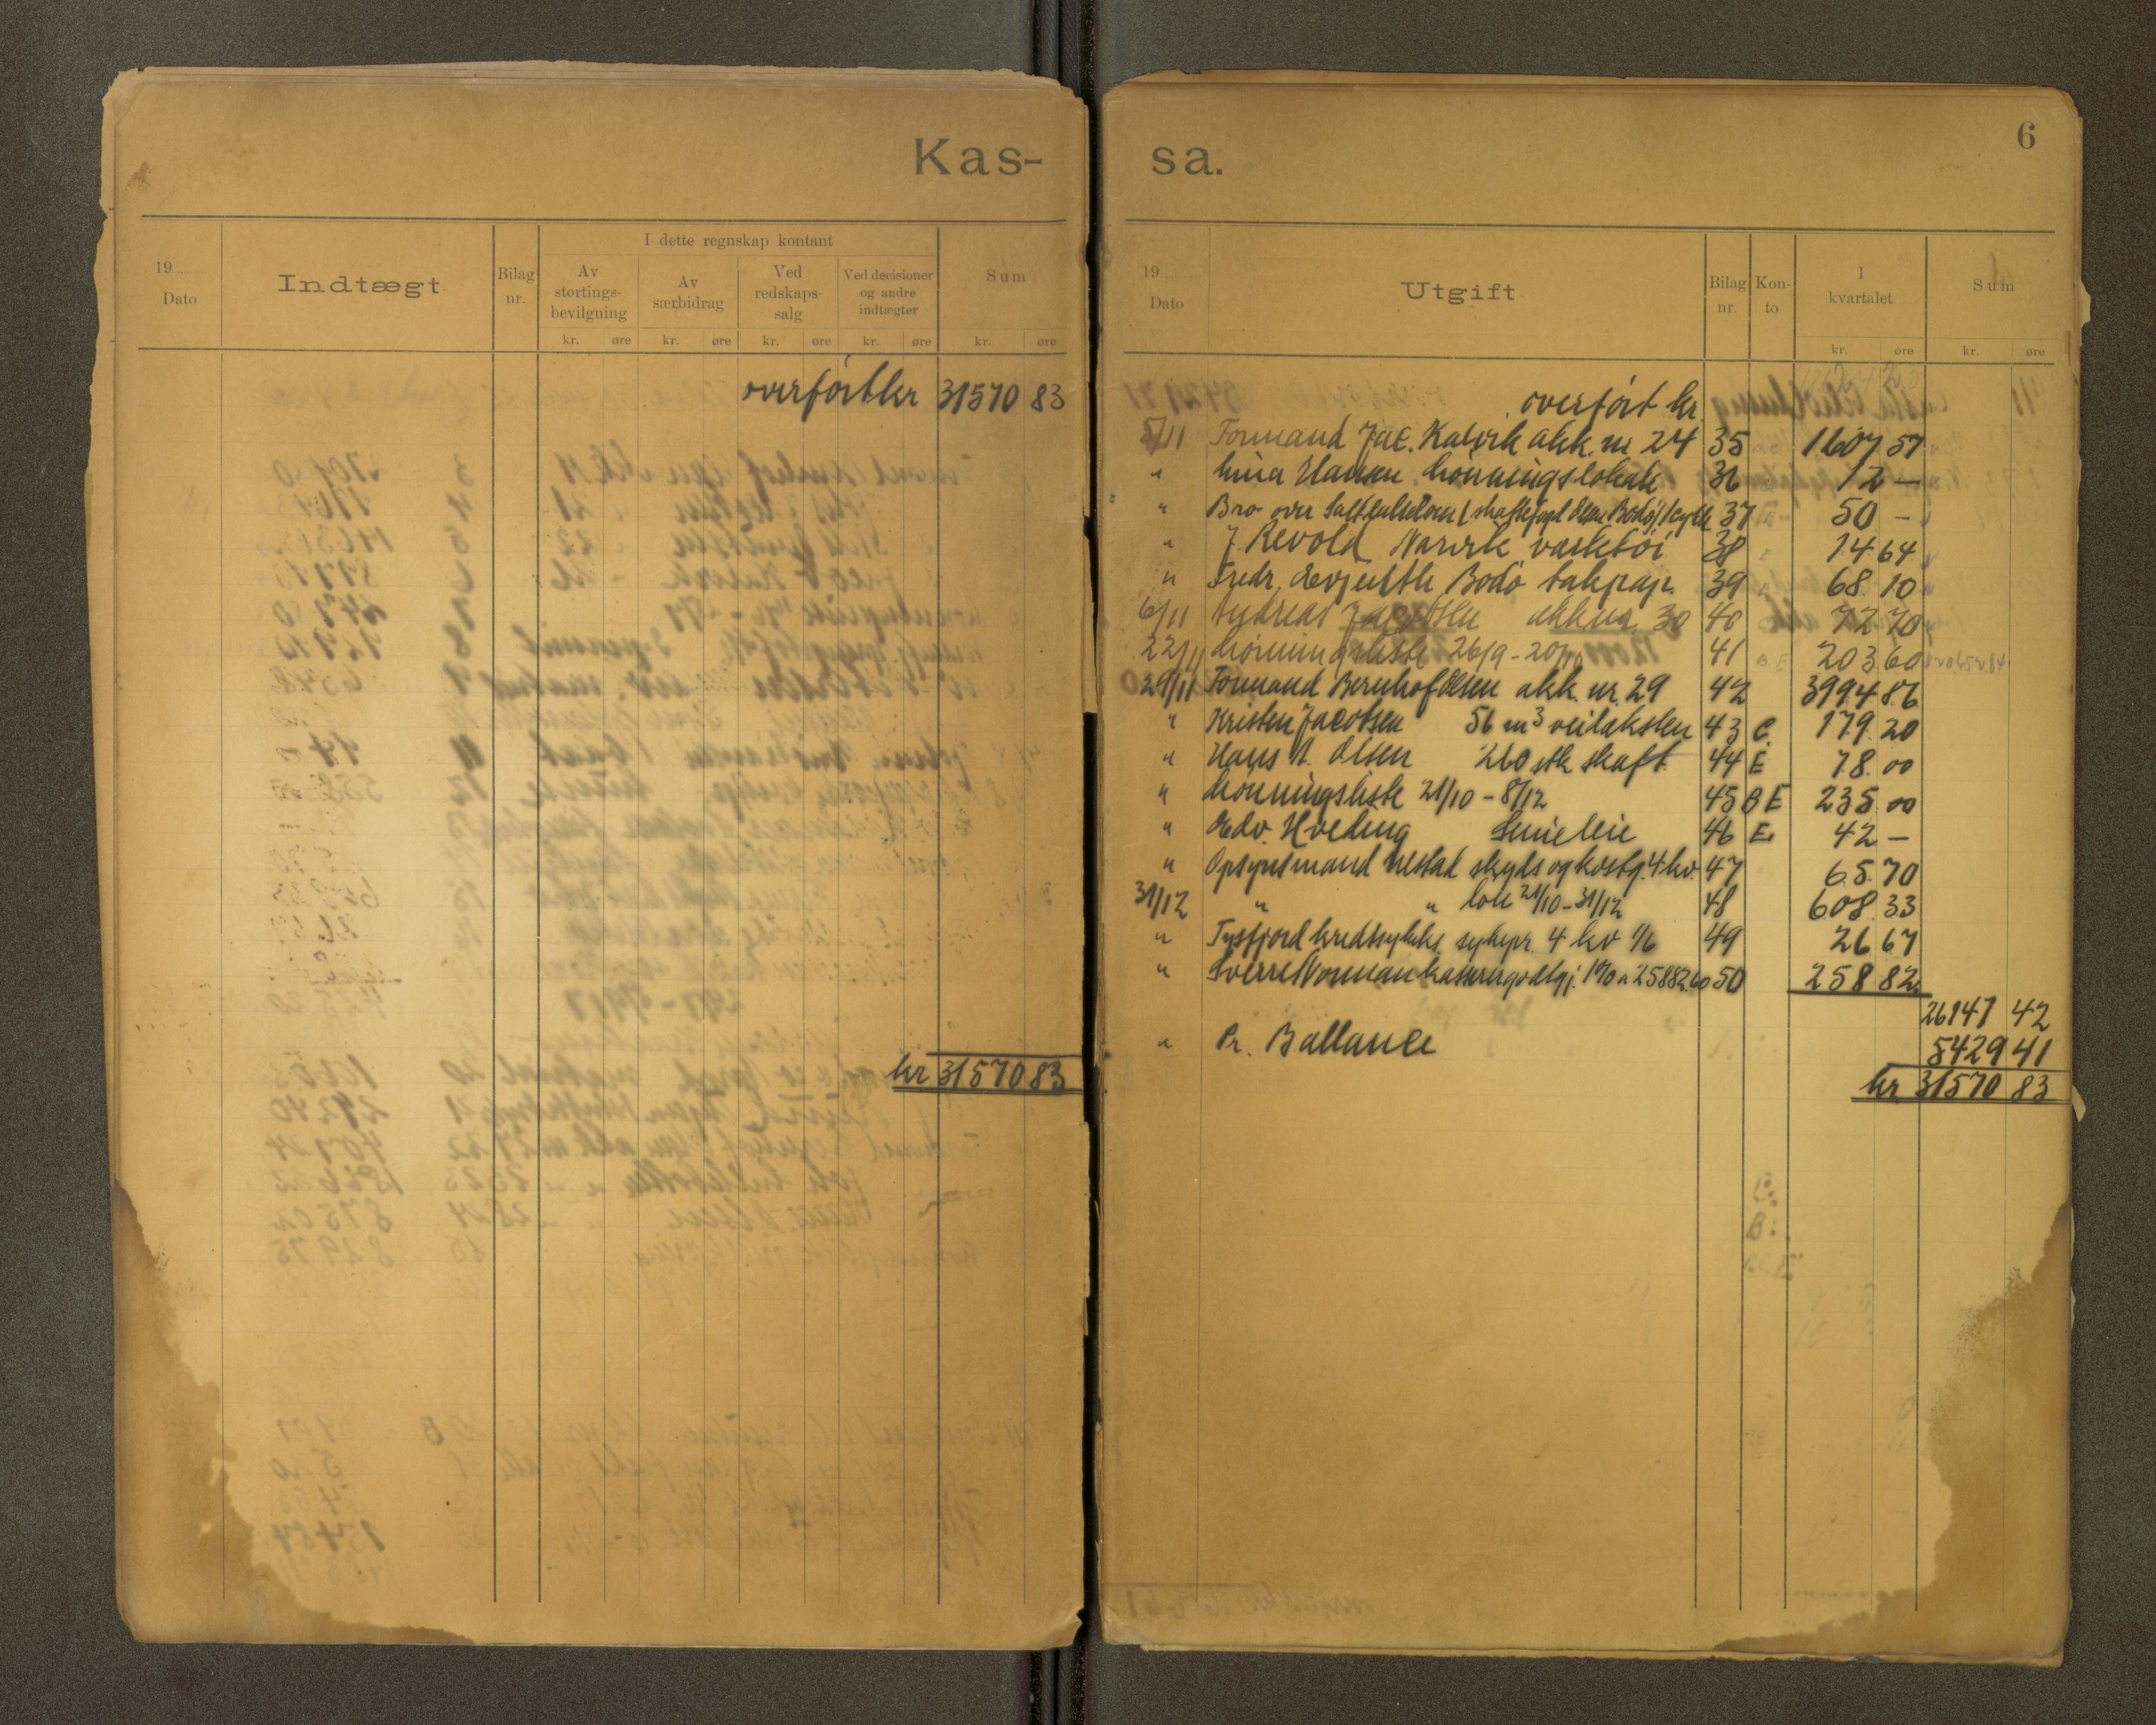 Kas-
I dette regnskap kontant
19 Dato Indtægt Bilag nr. Av stortings-bevilgning Av særbidrag Ved redskaps-salg Ved decisioner og andre indtægter Sum
kr. øre kr. øre kr. øre kr. øre kr. øre
overført kr 31570 83
kr 31570 83
sa.
6
19 Dato Utgift Bilag nr. Kon-to I kvartalet Sum
kr. øre kr. øre
overført kr.
5/11 Formand Jac. Kalvik akk. nr 24 35 1607 57
" Hansen lönningslokale 36 12 -
" Bro over 37 50 -
" J. Revold Narvik 38 14 64
" Fredr. Bodö takpap. 39 68 10
6/11 Andreas Jacobsen akk nr. 30 40 72 70
22/11 Lönningsliste 26/9 - 20/10 41 203 60
29/11 Formand Bernhof Olsen akk. nr. 29 42 3994 86
" Kristen Jacobsen 56 m³ 43 C 179 20
" Hans A. Olsen 260 stk skaft 44 E 78 00
" Lönningsliste 21/10 - 8/12 45 B E 235 00
" Edv. Hveding Smieleie 46 E 42 -
" Opsynsmand Nestad skyds og kostg. 4 kv. 47 65 70
31/12 " " lön 21/10 - 31/12 48 608 33
" Tysfjord kredssykek. sykepr. 4 kv 1/6 49 26 67
" Sverre Norman kasserergodtgj. 1% a 25882.60 50 258 82
26141 42
" Pr. Ballance 5429 41
kr 31570 83